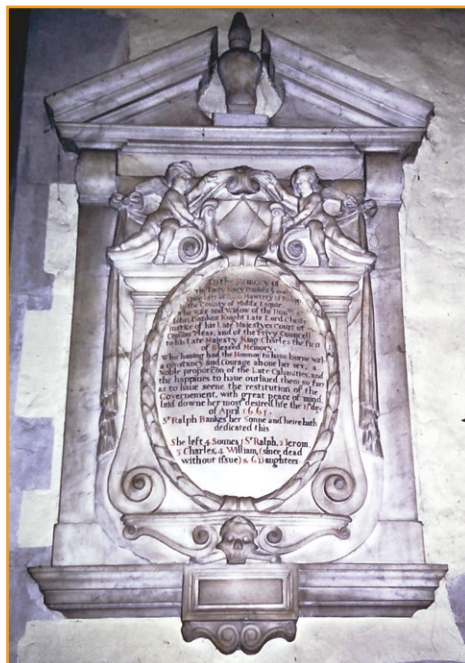 To the memory of
The Lady Mary Bankes
of Ralph Hawtrey of
the County of Midlx Esquire
The Wife and Widow of the Hon
John Bankes Knight Late Lord Cheife
Iustice of his Late Majestyes Court of
Common Pleas, and of the Privy Councell
to his Late Majesty King Charles the First
of Blessed Memory.
Who having had the Honnor to have borne with
a constancy and Courage above her sex, a
Noble proporcōn of the Late Calamities, and
the happines to have outlived them so far
as to have seene the restitution of the
Governement, with great peace of mind
laid downe her most desired life the 11 day
of April 1661.
Sr Ralph Bankes her Sonne and heire hath
dedicated this
She left 4 Sonnes 1 Sr Ralph, 2 Ierom
3 Charles, 4 William, (since dead
without issue) & 6 Daughters